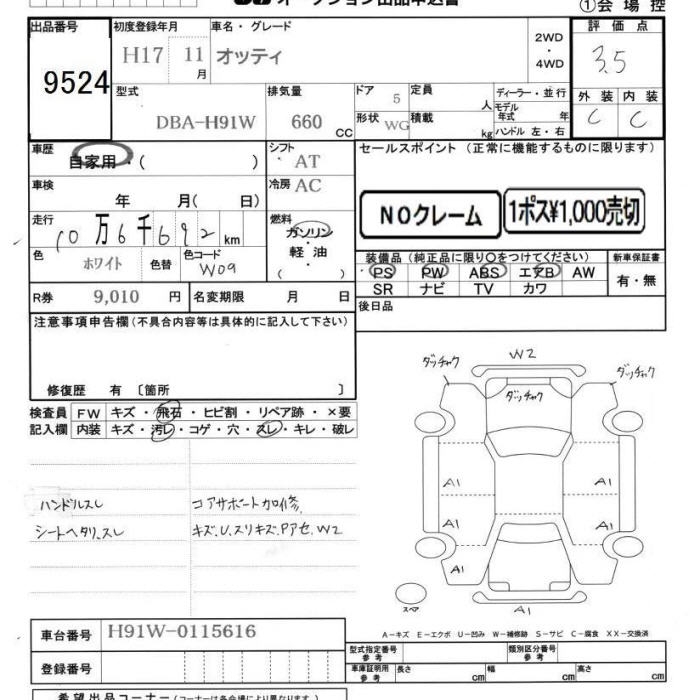 オークション出品申込書
①会場控
出品番号
9524
初度登録年月
H17 11月
車名・グレード
オッティ
2WD
・
4WD
評価点
3.5
外装 内装
C C
型式
DBA-H91W
排気量
660 CC
ドア 5
形状 WG
定員 人
積載 kg
ディーラー・並行
モデル年式 年
ハンドル 左・右
車歴
自家用・( )
シフト
AT
冷房 AC
セールスポイント (正常に機能するものに限ります)
NOクレーム
1ポス¥1,000売切
車検
年 月( 日)
走行
10万6千692km
燃料
ガソリン
・
軽油
( )
色
ホワイト
色替
色コード
W09
装備品(純正品に限り○をつけてください)
PS PW ABS エアB AW
SR ナビ TV カワ
新車保証書
有・無
R券 9,010 円
名変期限 月 日
後日品
注意事項申告欄(不具合内容等は具体的に記入して下さい)
修復歴 有 〔箇所 〕
検査員記入欄
FW キズ・飛石・ヒビ割・リペア跡・×要
内装 キズ・汚レ・コゲ・穴・スレ・キレ・破レ
ハンドルスレ
シートヘタリ、スレ
コアサポート加修、
キズ、U、スリキズ、Pアセ、W2
ダッチャク
W2
ダッチャク
ダッチャク
A1
A1
A1
A1
A1
A1
スペア
A1
A−キズ E−エクボ U−凹み W−補修跡 S−サビ C−腐食 XX−交換済
車台番号 H91W-0115616
登録番号
型式指定番号 参考
類別区分番号 参考
車庫証明用 参考
長さ cm
幅 cm
高さ cm
希望出品コーナー(コーナーは各会場により異なります。)